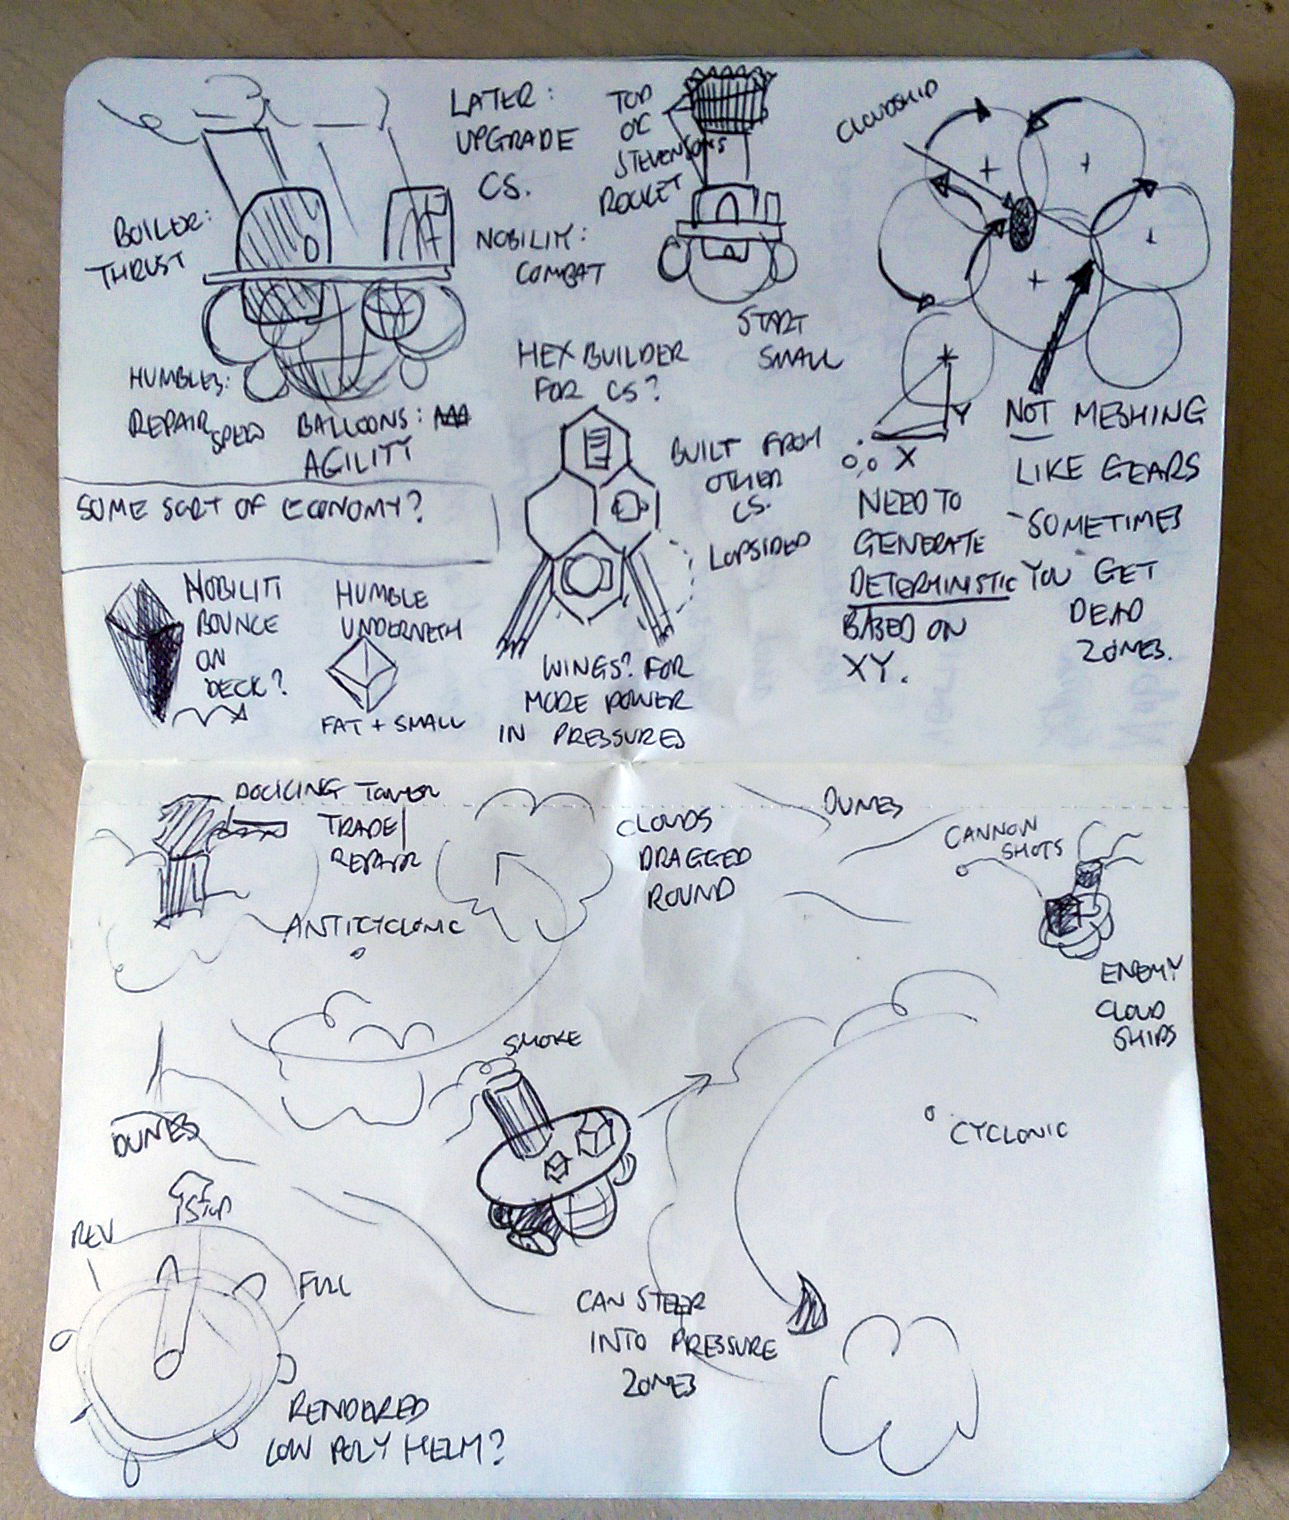 LATER:
UPGRADE
CS.
NOBILITY:
COMBAT
BOILER:
THRUST
HUMBLES:
REPAIR
SPEED
BALLOONS:
AGILITY
TOP
OF
STEVENSONS
ROCKET
START
SMALL
CLOUDSHIP
HEX BUILDER
FOR CS?
BUILT FROM
OTHER
CS.
LOPSIDED
WINGS? FOR
MORE POWER
IN PRESSURES
Y
X
NEED TO
GENERATE
DETERMINISTIC
BASED ON
XY.
NOT MESHING
LIKE GEARS
-SOMETIMES
YOU GET
DEAD
ZONES.
SOME SORT OF ECONOMY?
NOBILITY
BOUNCE
ON
DECK?
HUMBLE
UNDERNETH
FAT + SMALL
DOCKING TOWER
TRADE/
REPAIR
ANTICYCLONIC
CLOUDS
DRAGGED
ROUND
DUNES
CANNON
SHOTS
ENEMY
CLOUD
SHIPS
SMOKE
DUNES
CYCLONIC
REV
STOP
FULL
CAN STEER
INTO PRESSURE
ZONES
RENDERED
LOW POLY HELM?